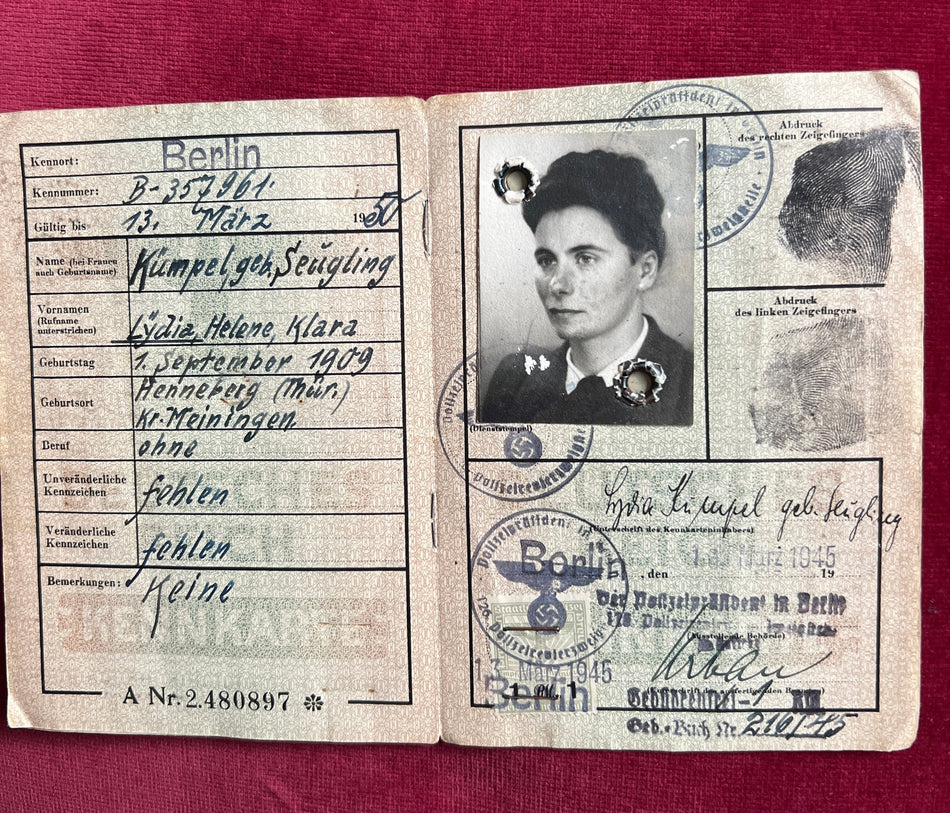 Kennort: Berlin
Kennummer: B-357961.
Gültig bis 13. März 1950
Name (bei Frauen auch Geburtsname) Kümpel, geb. Seügling
Vornamen
(Rufname
unterstrichen) Lydia, Helene, Klara
Geburtstag 1. September 1909
Geburtsort Henneberg (Thür.)
Kr. Meiningen
Beruf ohne
Unveränderliche
Kennzeichen fehlen
Veränderliche
Kennzeichen fehlen
Bemerkungen: Keine
KENNKARTE
A Nr. 2.480897
Abdruck
des rechten Zeigefingers
Abdruck
des linken Zeigefingers
Polizeipräsident in Berlin
(Dienststempel)
Lydia Kümpel geb. Seugling
(Unterschrift des Kennkarteninhabers)
Polizeipräsident in
Berlin, den März 1945 19
Der Polizeipräsident in Berlin
(Ausstellende Behörde)
13. März 1945
Berlin
(Unterschrift des ausfertigenden Beamten)
Gebührenfrei
Geb.-Buch Nr. 216/45